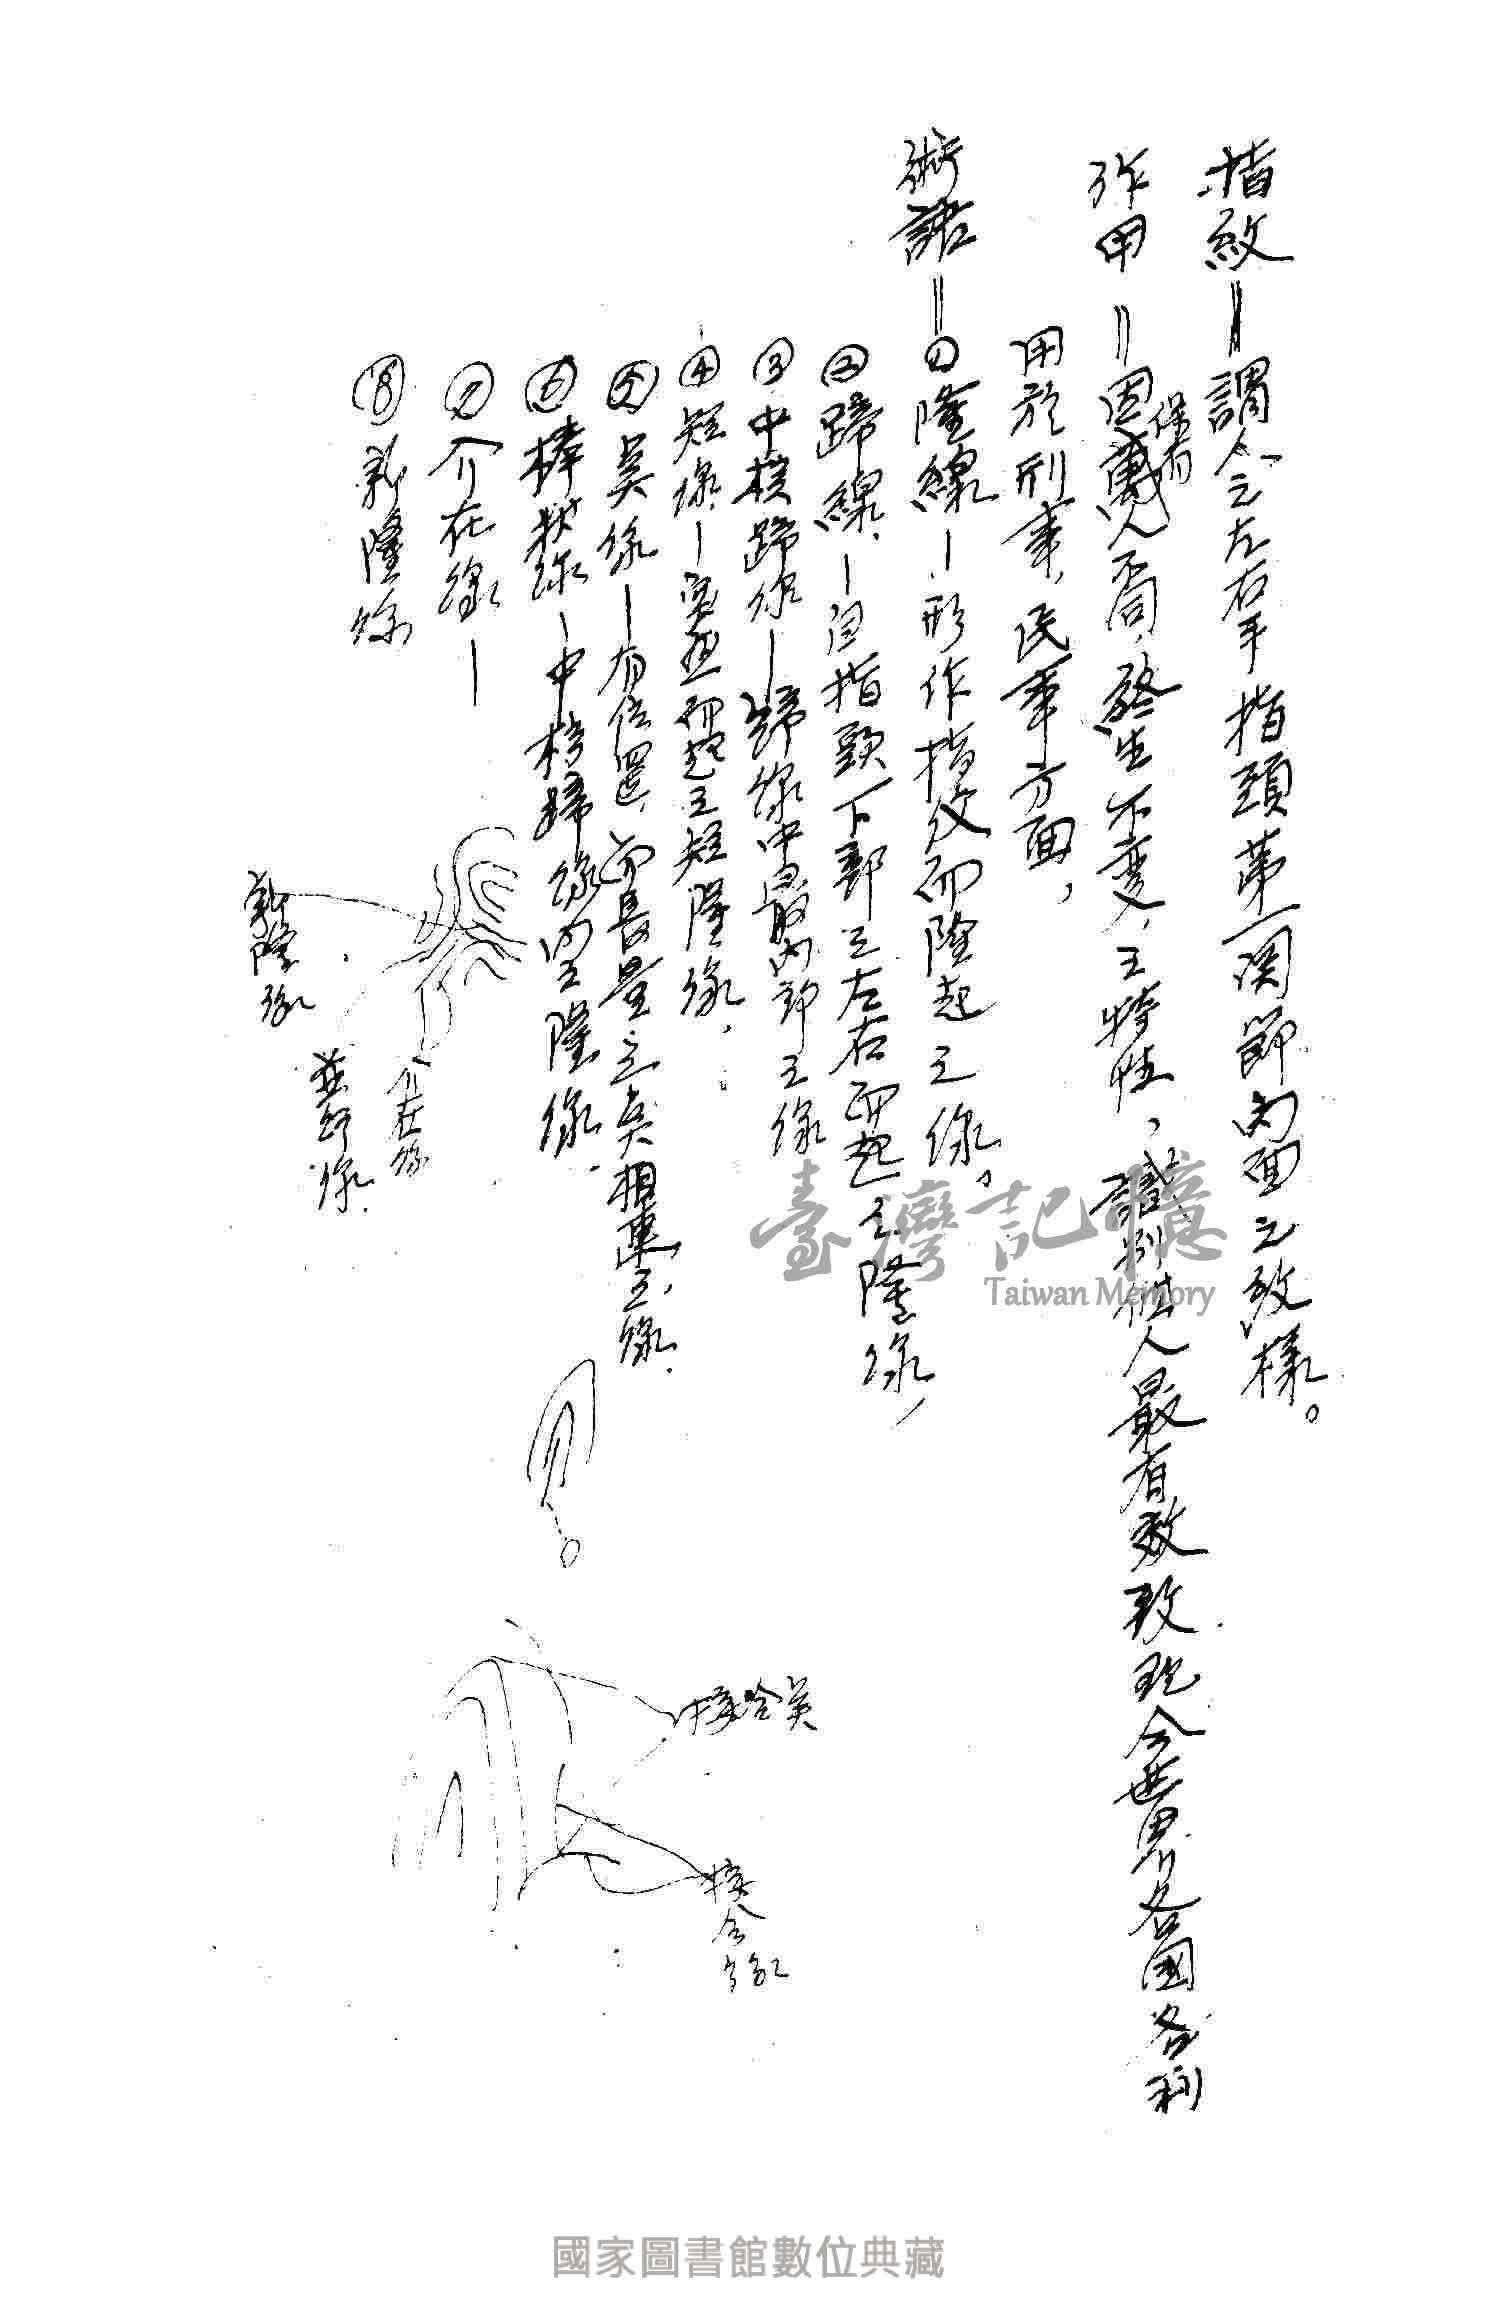 指紋＝謂人之左右手指頭第一関節內面之紋樣。
作用＝因保有萬人不同，終生不變，之特性，識別個人最有效故．現今世界各國各利
用於刑事，民事方面，
術語＝①隆線—形作指紋而隆起之線。
②蹄線．—自指頭下部之左右而起之隆線，
③中核蹄線—蹄線中最內部之線
④短線—突然而起之短隆線．
⑤点線—有位置，而長量之点相連之線．
⑥棒狀線—中核蹄線內之隆線．
⑦介在線—
⑧新隆線
新隆線
並行線．
介在線
接合点
接合線
臺灣記憶
Taiwan Memory
國家圖書館數位典藏